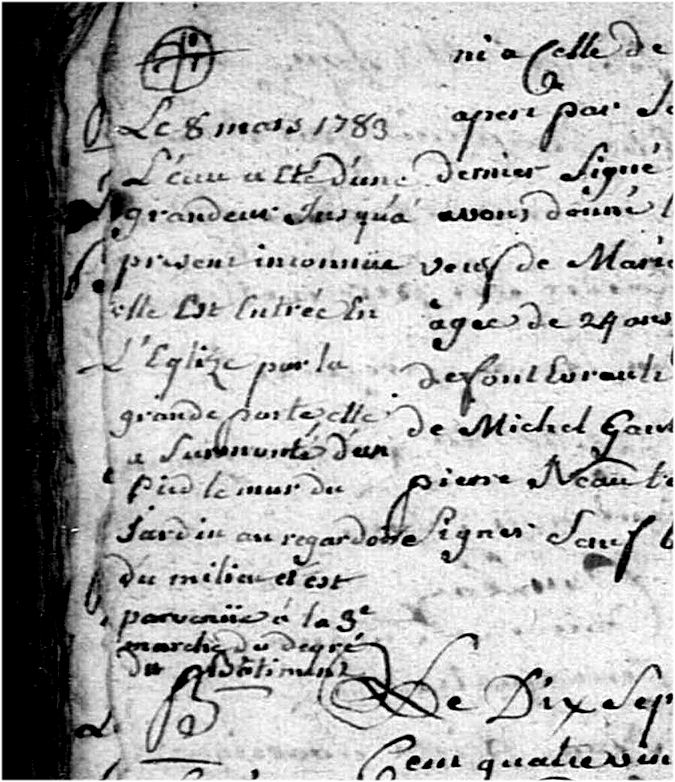 Le 8 mars 1783
L'eau a été d'une
grandeur Jusqu'á
present inconnüe
elle Est Entrée En
L'Eglize par la
grande porte elle
a Surmonté d'un
Pied le mur du
Jardin au regard
du milieu et est
parvenüe á la 3e
marche du degré
du Bâtiment
ni a Celle de
apert par
dernier Signé
avons donné
veuf de Marie
âgée de 24 ans
de font Evrault
de Michel
pierre Neau
Signer Sauf
Le Dix Sep
Cent quatre vin